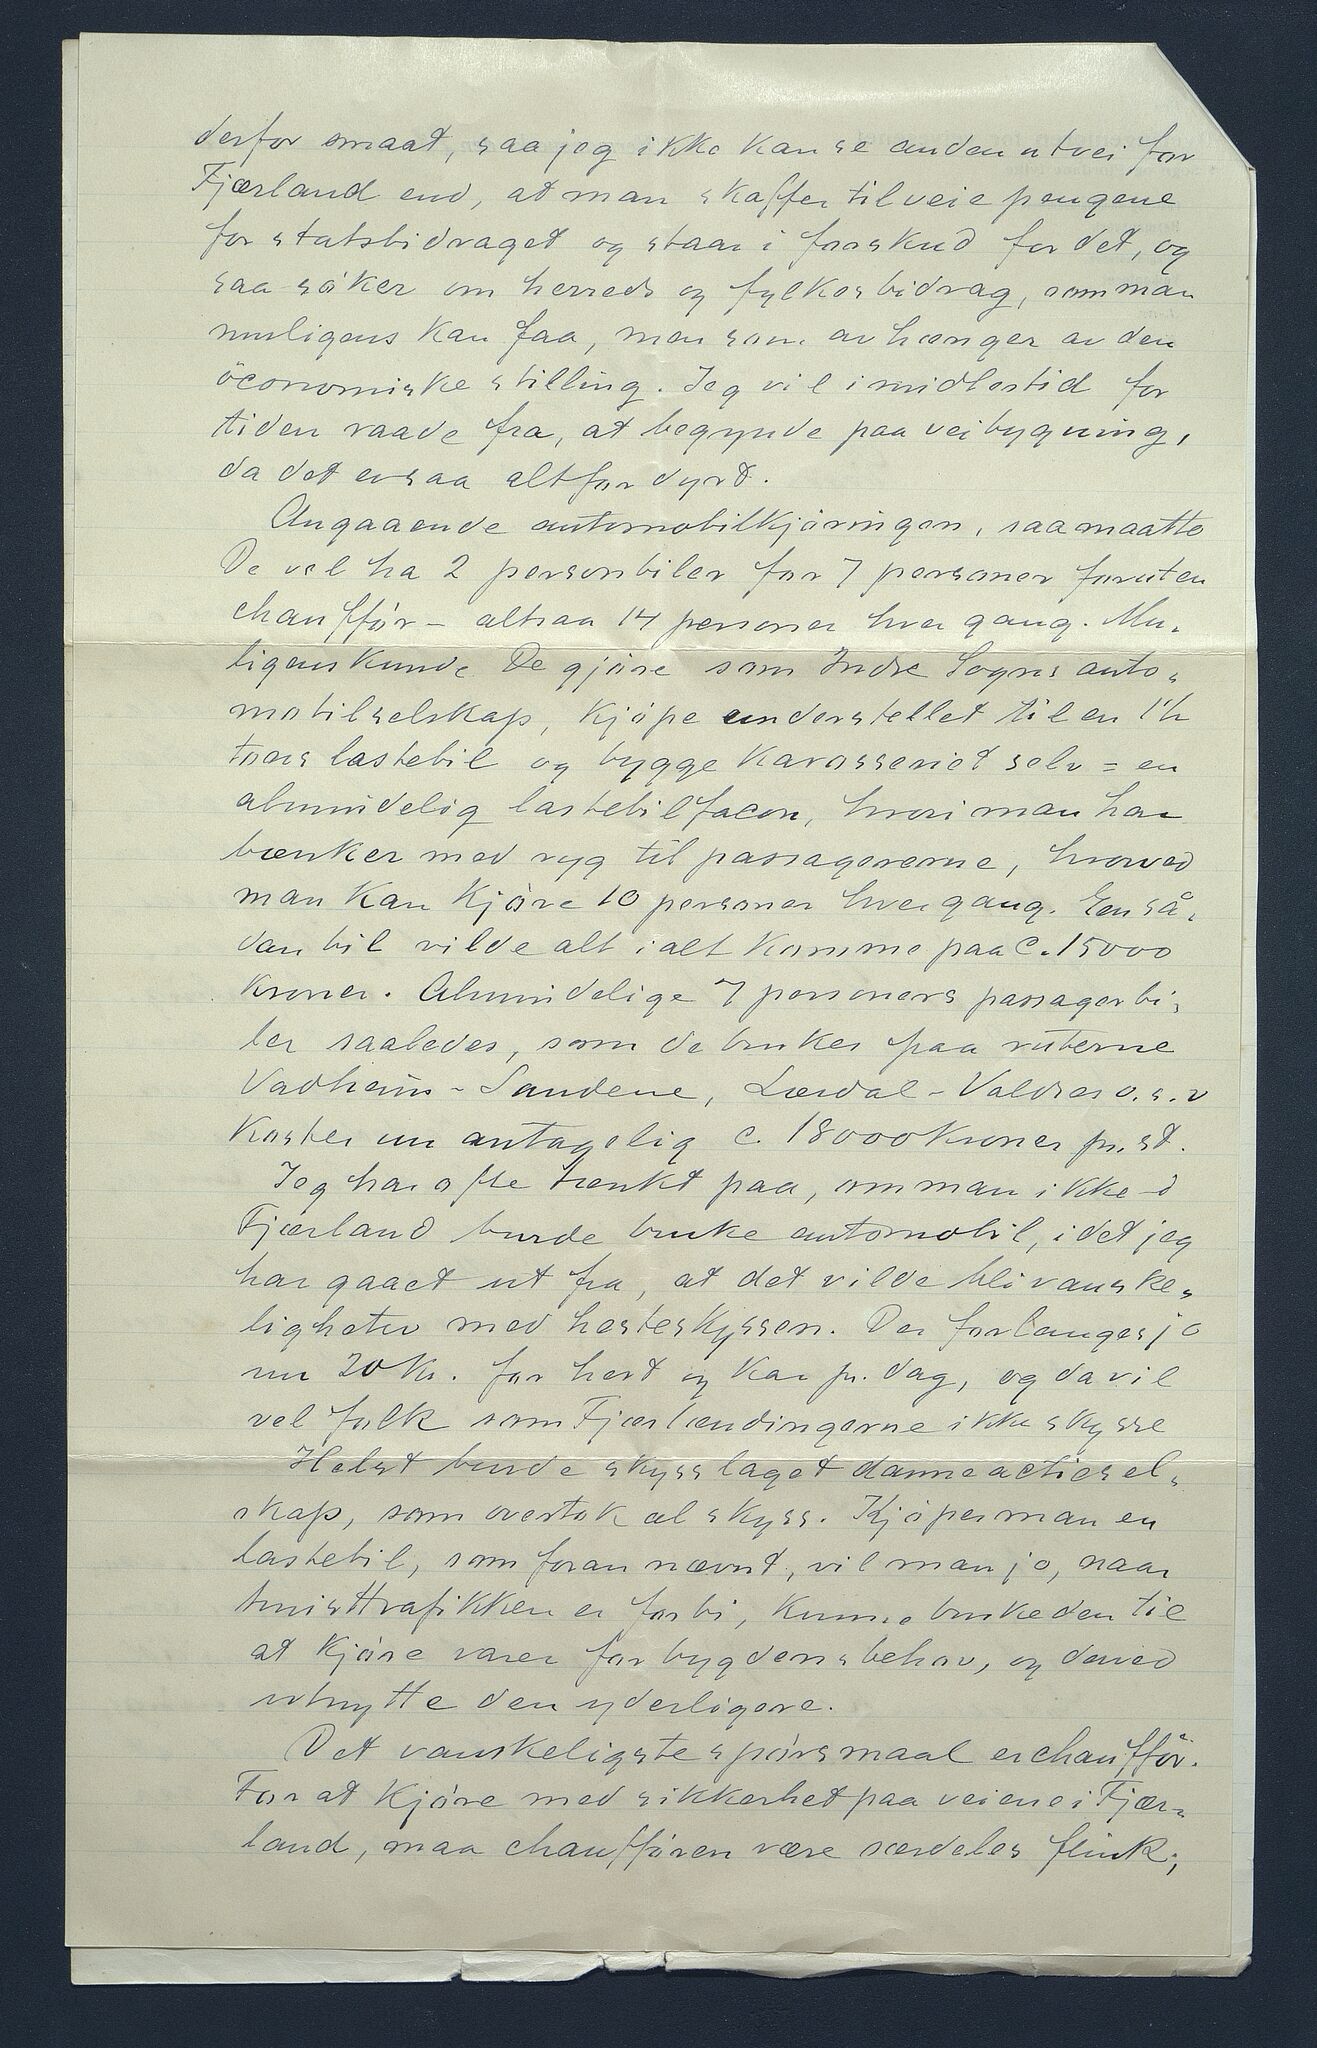 derfor smaat, saa jeg ikke kan se anden utvei for
Fjærland end, at man skaffer tilveie pengene
for statsbidraget og staar i forskud for det, og
saa söker om herreds og fylkesbidrag, som man
muligens kan faa, men som avhænger av den
öconomiske stilling. Jeg vil imidlertid for
tiden raade fra, at begynde paa veibygning,
da det er saa altfor dyrt.
Angaaende automobilkjöringen, saa maatte
De vel ha 2 personbiler for 7 personer foruten
chauffør - altsaa 14 personer hver gang. Mu-
ligens kunde De gjöre som Indre Sogns auto-
mobilselskap, kjöpe understellet til en 1½
tons lastebil og bygge karosseriet selv = en
almindelig lastebilfacon, hvori man har
bænker med ryg til passagererne, hvorved
man kan kjöre 10 personer hver gang. En så-
dan bil vilde alt i alt komme paa c. 15000
kroner. Almindelige 7 personers passagerbi-
ler saaledes, som de brukes paa ruterne
Vadheim - Sandene, Lærdal - Valdres o.s.v
koster nu antagelig c. 18000 kroner pr. st.
Jeg har ofte tænkt paa, om man ikke i
Fjærland burde bruke automobil, idet jeg
har gaaet ut fra, at det vilde bli vanske-
ligheter med hesteskyssen. Der forlanges jo
nu 20 kr. for hest og kar pr. dag, og da vil
vel folk som Fjærlændingerne ikke skysse
Helst burde skysslaget danne actiesel-
skap, som overtok al skyss. Kjöper man en
lastebil, som foran nævnt, vil man jo, naar
turisttrafikken er forbi, kunne bruke den til
at kjöre varer for bygdens behov, og derved
utnytte den yderligere.
Det vanskeligste spörsmaal er chaufför.
For at kjöre med sikkerhet paa veiene i Fjær-
land, maa chauffören være særdeles flink,